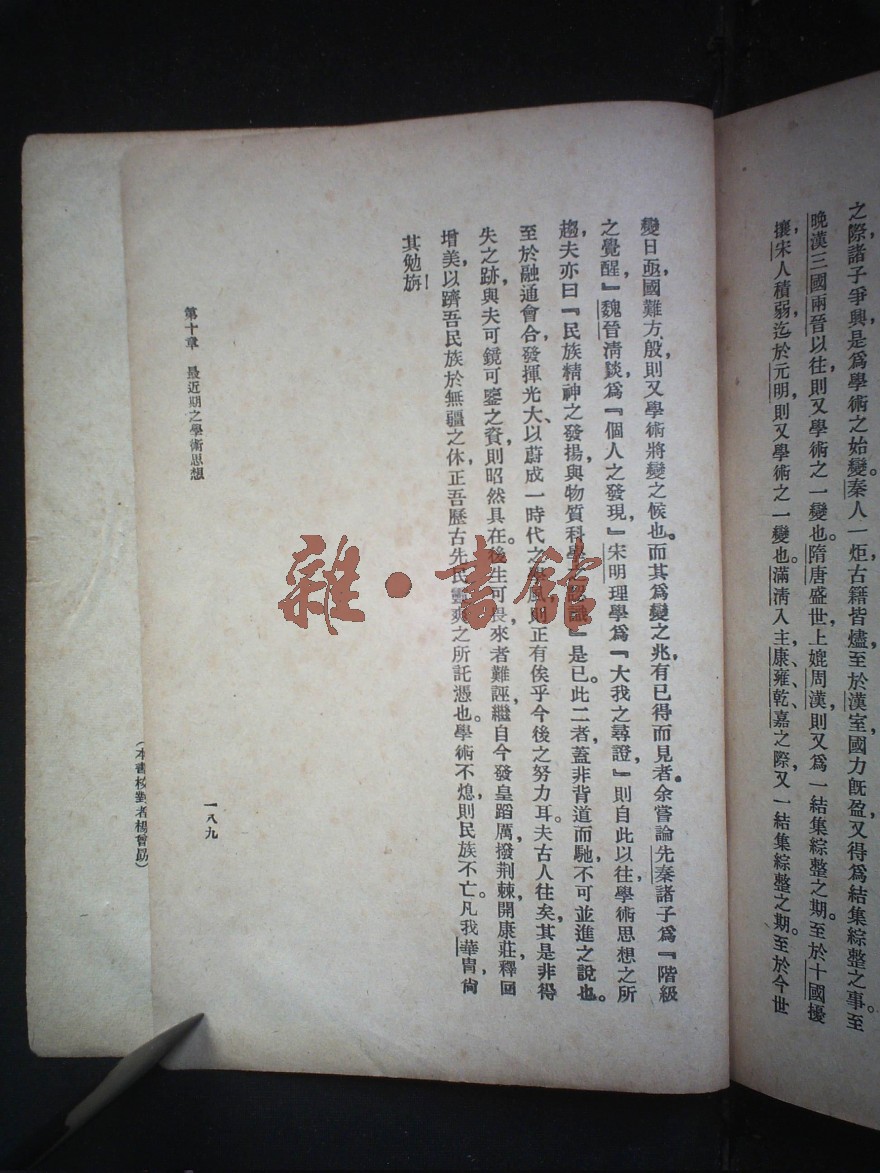 之際，諸子爭興，是爲學術之始變。秦人一炬，古籍皆燼，至於漢室，國力旣盈，又得爲結集綜整之事。至
晚漢三國兩晉以往，則又學術之一變也。隋唐盛世，上媲周漢，則又爲一結集綜整之期。至於十國擾
攘，宋人積弱，迄於元明，則又學術之一變也。滿淸入主，康、雍、乾、嘉之際，又一結集綜整之期。至於今世
變日亟，國難方殷，則又學術將變之候也。而其爲變之兆，有已得而見者。余嘗論先秦諸子爲『階級
之覺醒，』魏晉淸談爲『個人之發現，』宋明理學爲『大我之尋證，』則自此以往，學術思想之所
趨，夫亦曰『民族精神之發揚與物質科學之認識』是已。此二者蓋非背道而馳，不可並進之說也。
至於融通會合，發揮光大，以蔚成一時代之學風，則正有俟乎今後之努力耳。夫古人往矣，其是非得
失之跡，與夫可鏡可鑒之資，則昭然具在。後生可畏，來者難誣，繼自今發皇蹈厲，撥荆棘，開康莊，釋回
增美，以躋吾民族於無疆之休，正吾歷古先民靈爽之所託憑也。學術不熄，則民族不亡。凡我華胄，尙
其勉旃！
第十章　最近期之學術思想
一八九
（本書校對者楊曾勗）
雜·書館